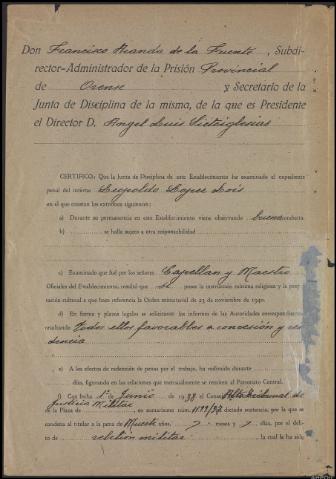 Don Francisco Aranda de la Fuente, Subdi-
rector-Administrador de la Prisión Provincial
de Orense y Secretario de la
Junta de Disciplina de la misma, de la que es Presidente
el Director D. Angel Luis Sieteiglesias
CERTIFICO: Que la Junta de Disciplina de este Establecimiento ha examinado el expediente
penal del recluso Leopoldo Lopez Lois
en el que constan los extremos siguientes:
a) Durante su permanencia en este Establecimiento viene observando buena conducta.
b) se halla sujeto a otra responsabilidad
c) Examinado que fué por los señores Capellan y Maestro
Oficiales del Establecimiento, resultó que si posee la instrucción mínima religiosa y la prepa-
ración cultural a que hace referencia la Orden ministerial de 23 de noviembre de 1940.
d) En forma y plazos legales se solicitaron los informes de las Autoridades correspondientes
resultando todos ellos favorables a concesión y
dencia
e) A los efectos de redención de penas por el trabajo, ha redimido durante
días, figurando en las relaciones que mensualmente se remiten al Patronato Central.
f) Con fecha 1º de Junio de 1938 el Consejo Alto tribunal de
Justicia Militar
de la Plaza de en sumarísimo núm. 1199/37 dictado sentencia, por la que se
condena al titular a la pena de Muerte años, meses y días, por el deli-
to de rebelion militar la cual le ha sido